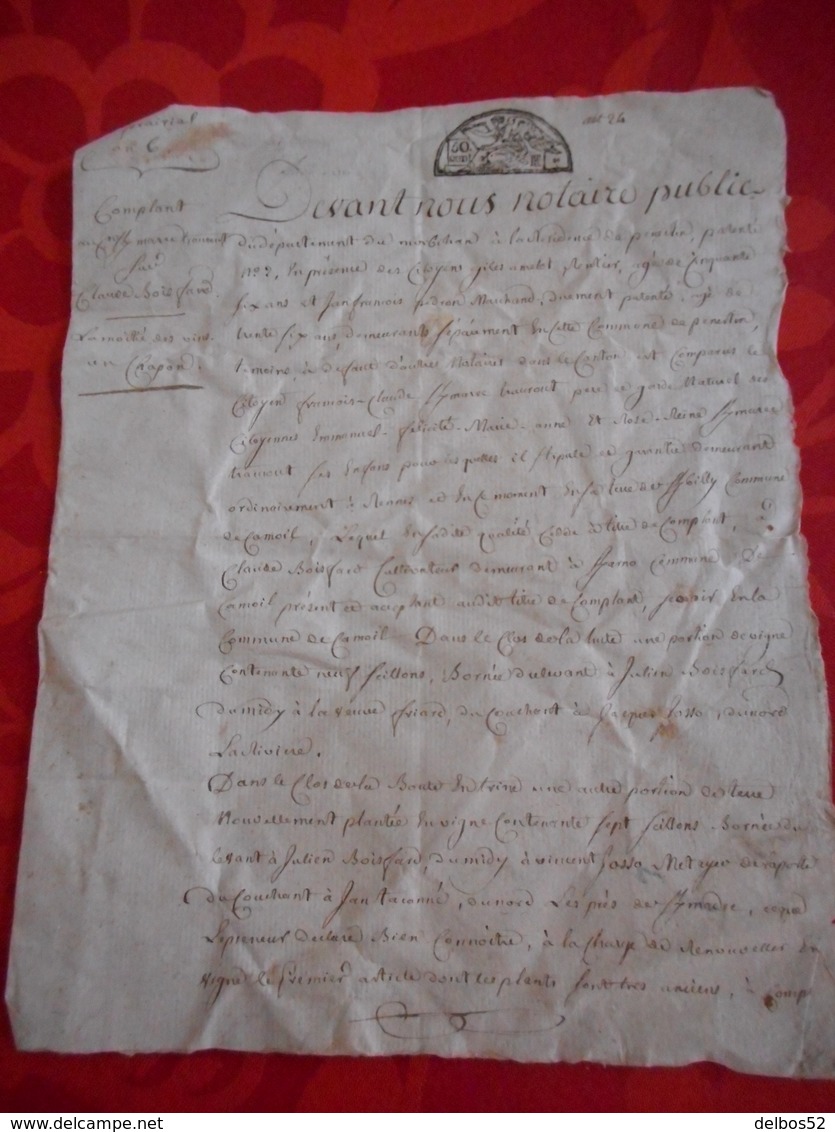 prairial
an 6
50
Complant
Sur
Claude Boissard
La moitié des vins
un Chapon.
Devant nous notaire public
du département du morbihan à la résidence de penestin, patenté
N° 3, En présence des Citoyens giles amelot rentier, agé de Cinquante
six ans et Jan francois Marchand, duement patenté, agé de
trente six ans, demeurants séparément En cette Commune de penestin,
temoins, à defaut d'autres Notaires dans le Canton est Comparus le
Citoyen francois-Claude père et garde Naturel des
Citoyennes Emmanuel-felicité-Marie-anne Et Rose-Reine
ses Enfans pour lesquelles il stipule et garantie demeurant
ordinairement à Rennes et En Ce moment En sa terre de Commune
de Camoil, Lequel En sadite qualité Cède à titre de Complant, à
Claude Boissard Cultivateur demeurant à Commune de
Camoil présent et acceptant audit titre de Complant, savoir En la
Commune de Camoil. Dans le Clos de la une portion de vigne
Contenante neuf seillons, Bornée du levant à Julien Boissard
du midy à la veuve friard, du Couchant à Josso, du nord
La Rivière.
Dans le Clos de la une autre portion de terre
Nouvellement plantée En vigne Contenante sept seillons Bornée du
levant à Julien Boissard, du midy à vincent Josso
du Couchant à Jan taconné, du nord Les prés de
Le preneur declare Bien Connoitre, à la Charge de Renouveller En
vigne le premier article dont les plants sont très anciens, à Comp
delbos52